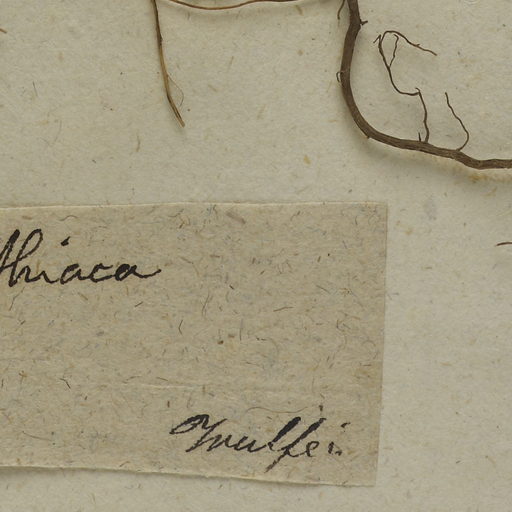 striaca
Wulfen